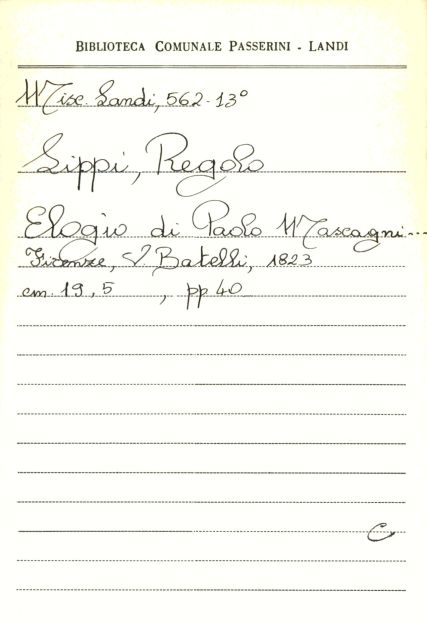 BIBLIOTECA COMUNALE PASSERINI - LANDI
Misc. Landi, 562-13°
Lippi, Regolo
Elogio di Paolo Mascagni...
Firenze, V. Batelli, 1823
cm. 19,5 , pp 40
C